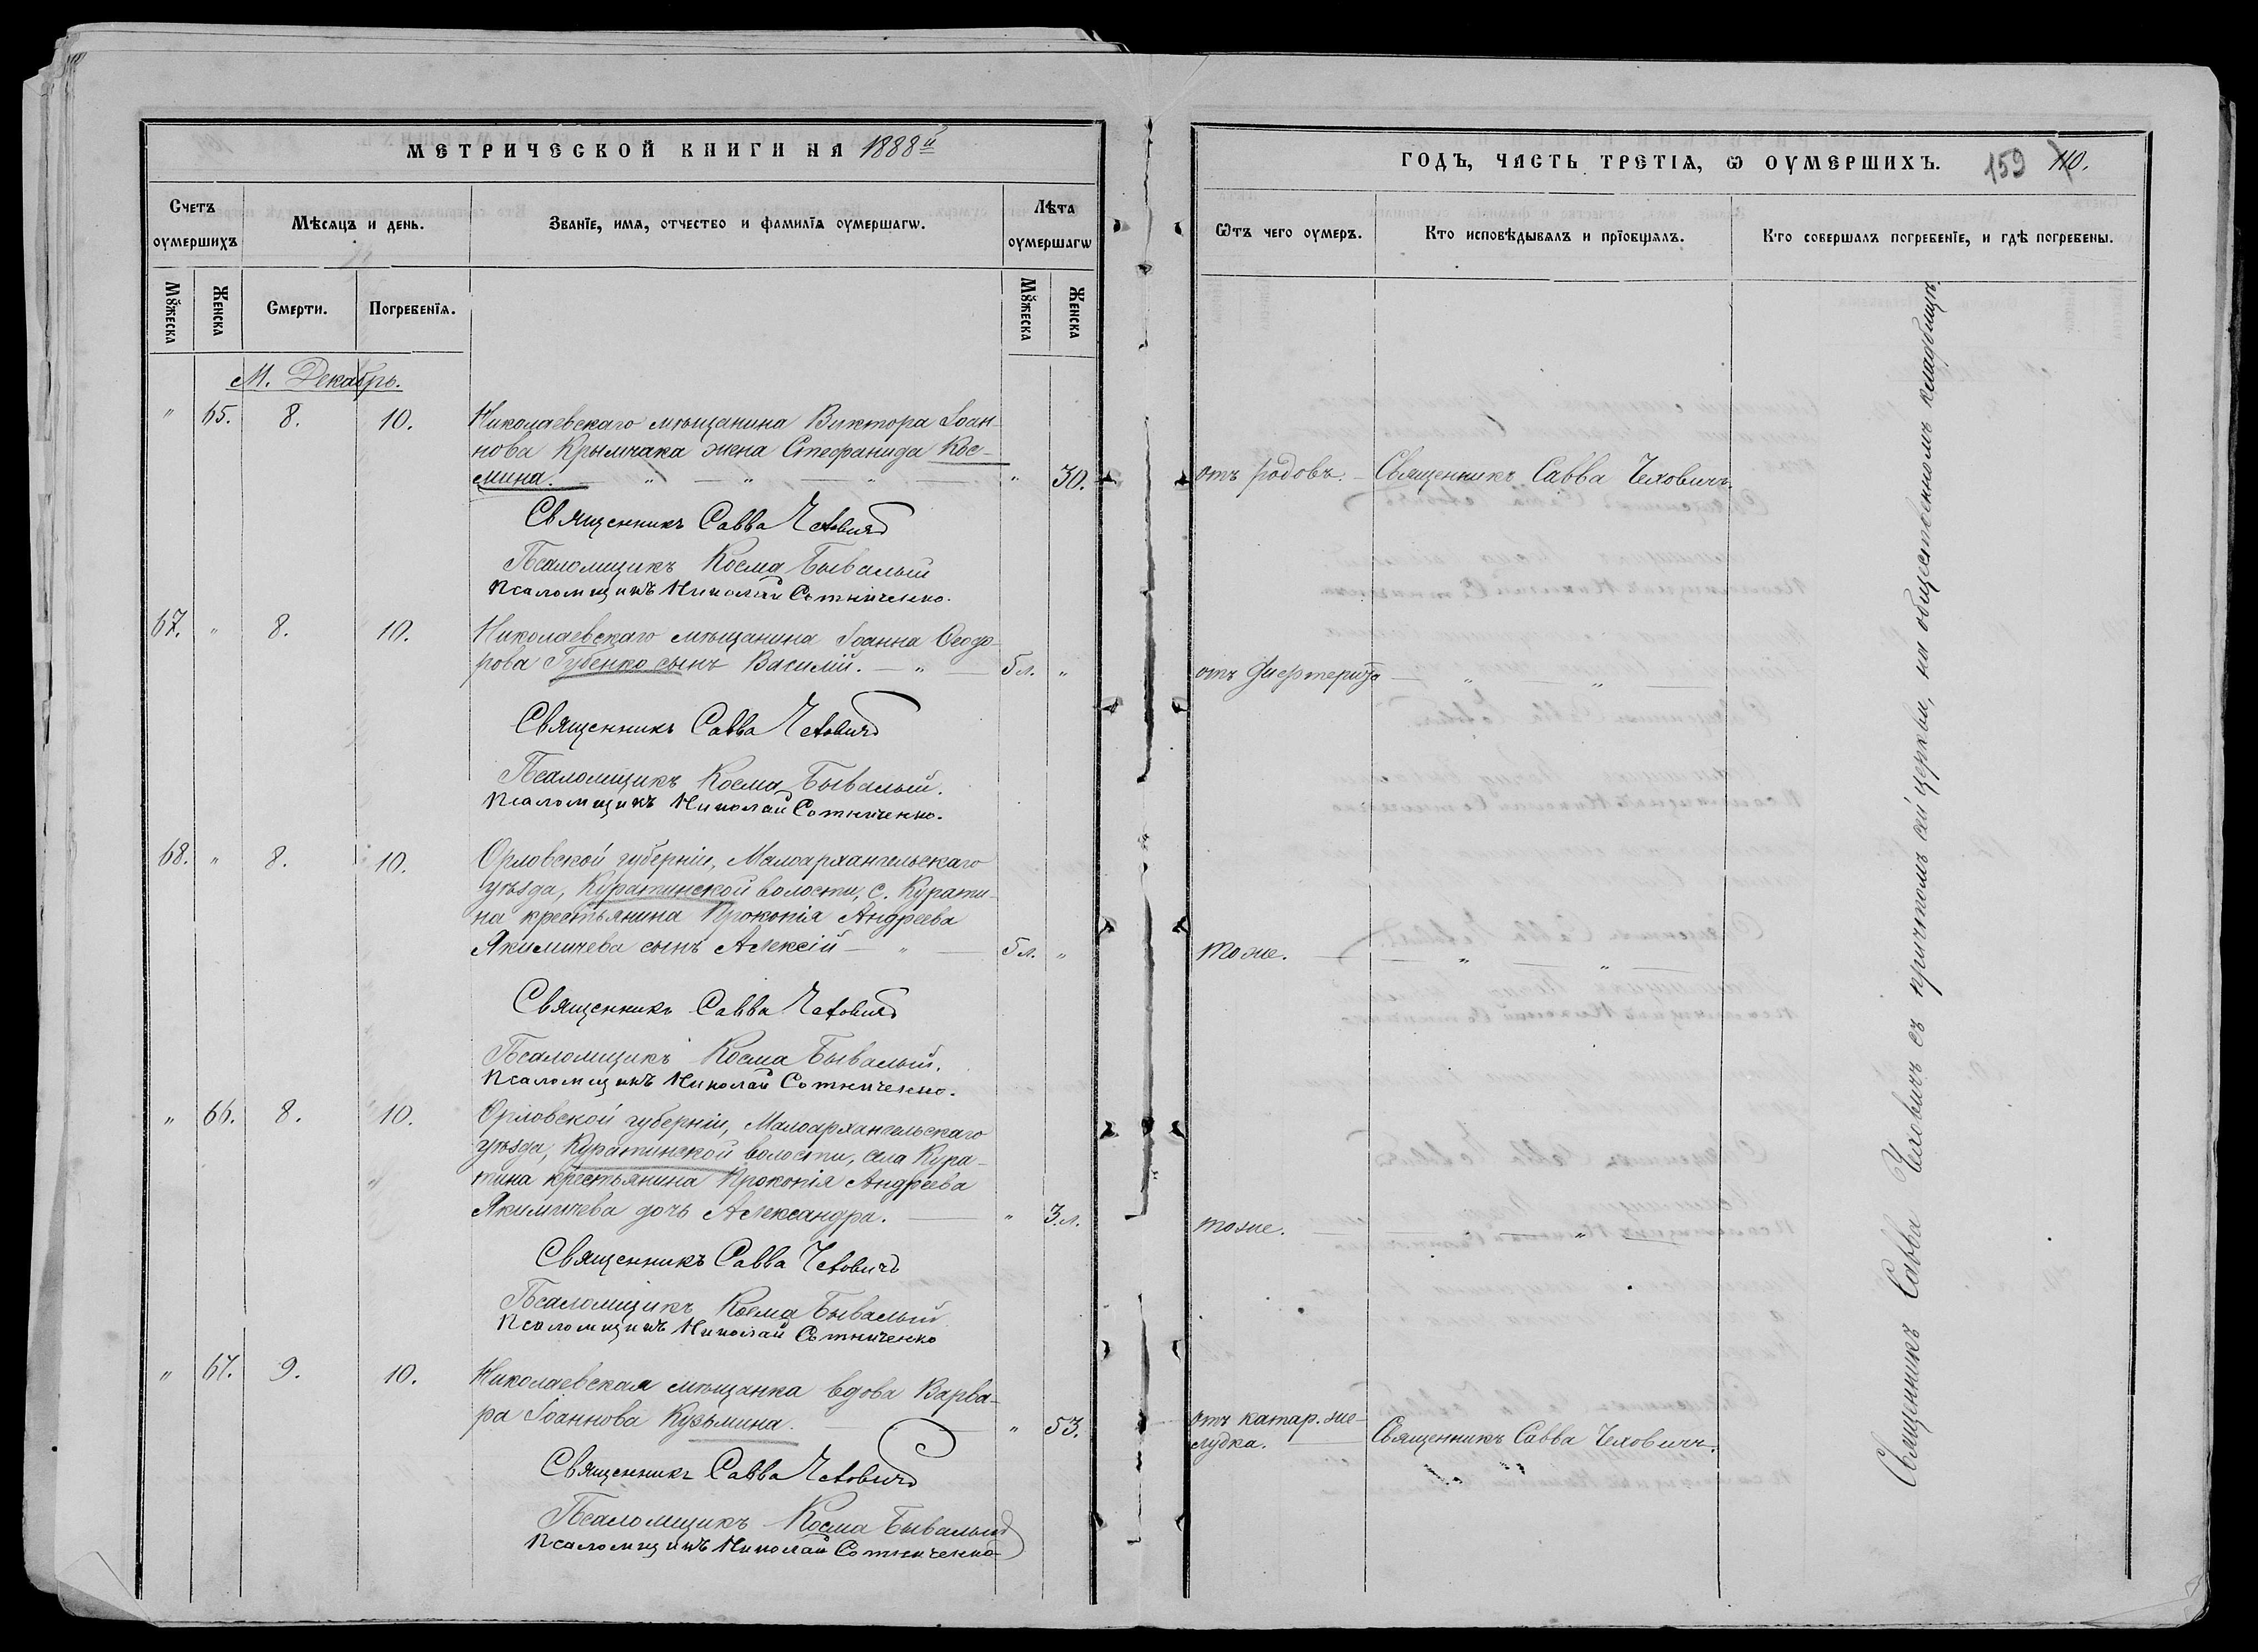 МЕТРИЧЕСКОЙ КНИГИ НА 1888й
Счетъ оумершихъ
Мѣсяцъ и день.
Званїе, имя, отчество и фамилїя оумершагѡ.
Лѣта оумершагѡ
Мꙋжеска
Женска
Смерти.
Погребенїя.
Мꙋжеска
Женска
М. Декабрь.
" 65. 8. 10. Николаевскаго мѣщанина Виктора Іоан-
нова Крымчака жена Стефанида Кос-
мина. — " — " — " " 30.
Священникъ Савва Чеховичъ
Псаломщикъ Косма Бывалый
Псаломщикъ Николай Сотниченко.
67. " 8. 10. Николаевскаго мѣщанина Іоанна Ѳеодо-
рова Губенко сынъ Василій. — " — 5 л. "
Священникъ Савва Чеховичъ
Псаломщикъ Косма Бывалый.
Псаломщикъ Николай Сотниченко.
68. " 8. 10. Орловской губерніи, Малоархангельскаго
уѣзда, Куратинской волости, с. Курати-
на крестьянина Прокопія Андреева
Якимичева сынъ Алексій — " — 5 л. "
Священникъ Савва Чеховичъ
Псаломщикъ Косма Бывалый.
Псаломщикъ Николай Сотниченко.
" 66. 8. 10. Орловской губерніи, Малоархангельскаго
уѣзда, Куратинской волости, села Кура-
тина крестьянина Прокопія Андреева
Якимичева дочь Александра. — " 3. л.
Священникъ Савва Чеховичъ
Псаломщикъ Косма Бывалый
Псаломщикъ Николай Сотниченко
" 67. 9. 10. Николаевская мѣщанка вдова Варва-
ра Іоаннова Кузьмина. — " 53.
Священникъ Савва Чеховичъ
Псаломщикъ Косма Бывалый
Псаломщикъ Николай Сотниченко
ГОДЪ, ЧАСТЬ ТРЕТІЯ, Ѡ ОУМЕРШИХЪ. 159 110.
Ѿтъ чего оумеръ.
Кто исповѣдывалъ и прїобщалъ.
Кто совершалъ погребенїе, и гдѣ погребены.
отъ родовъ. — Священникъ Савва Чеховичъ.
отъ дифтерита — " — " —
тоже. — " — " —
тоже. — " —
отъ катар. же-
лудка. — Священникъ Савва Чеховичъ.
Священникъ Савва Чеховичъ съ причтомъ сей церкви, на общественномъ кладбищѣ.